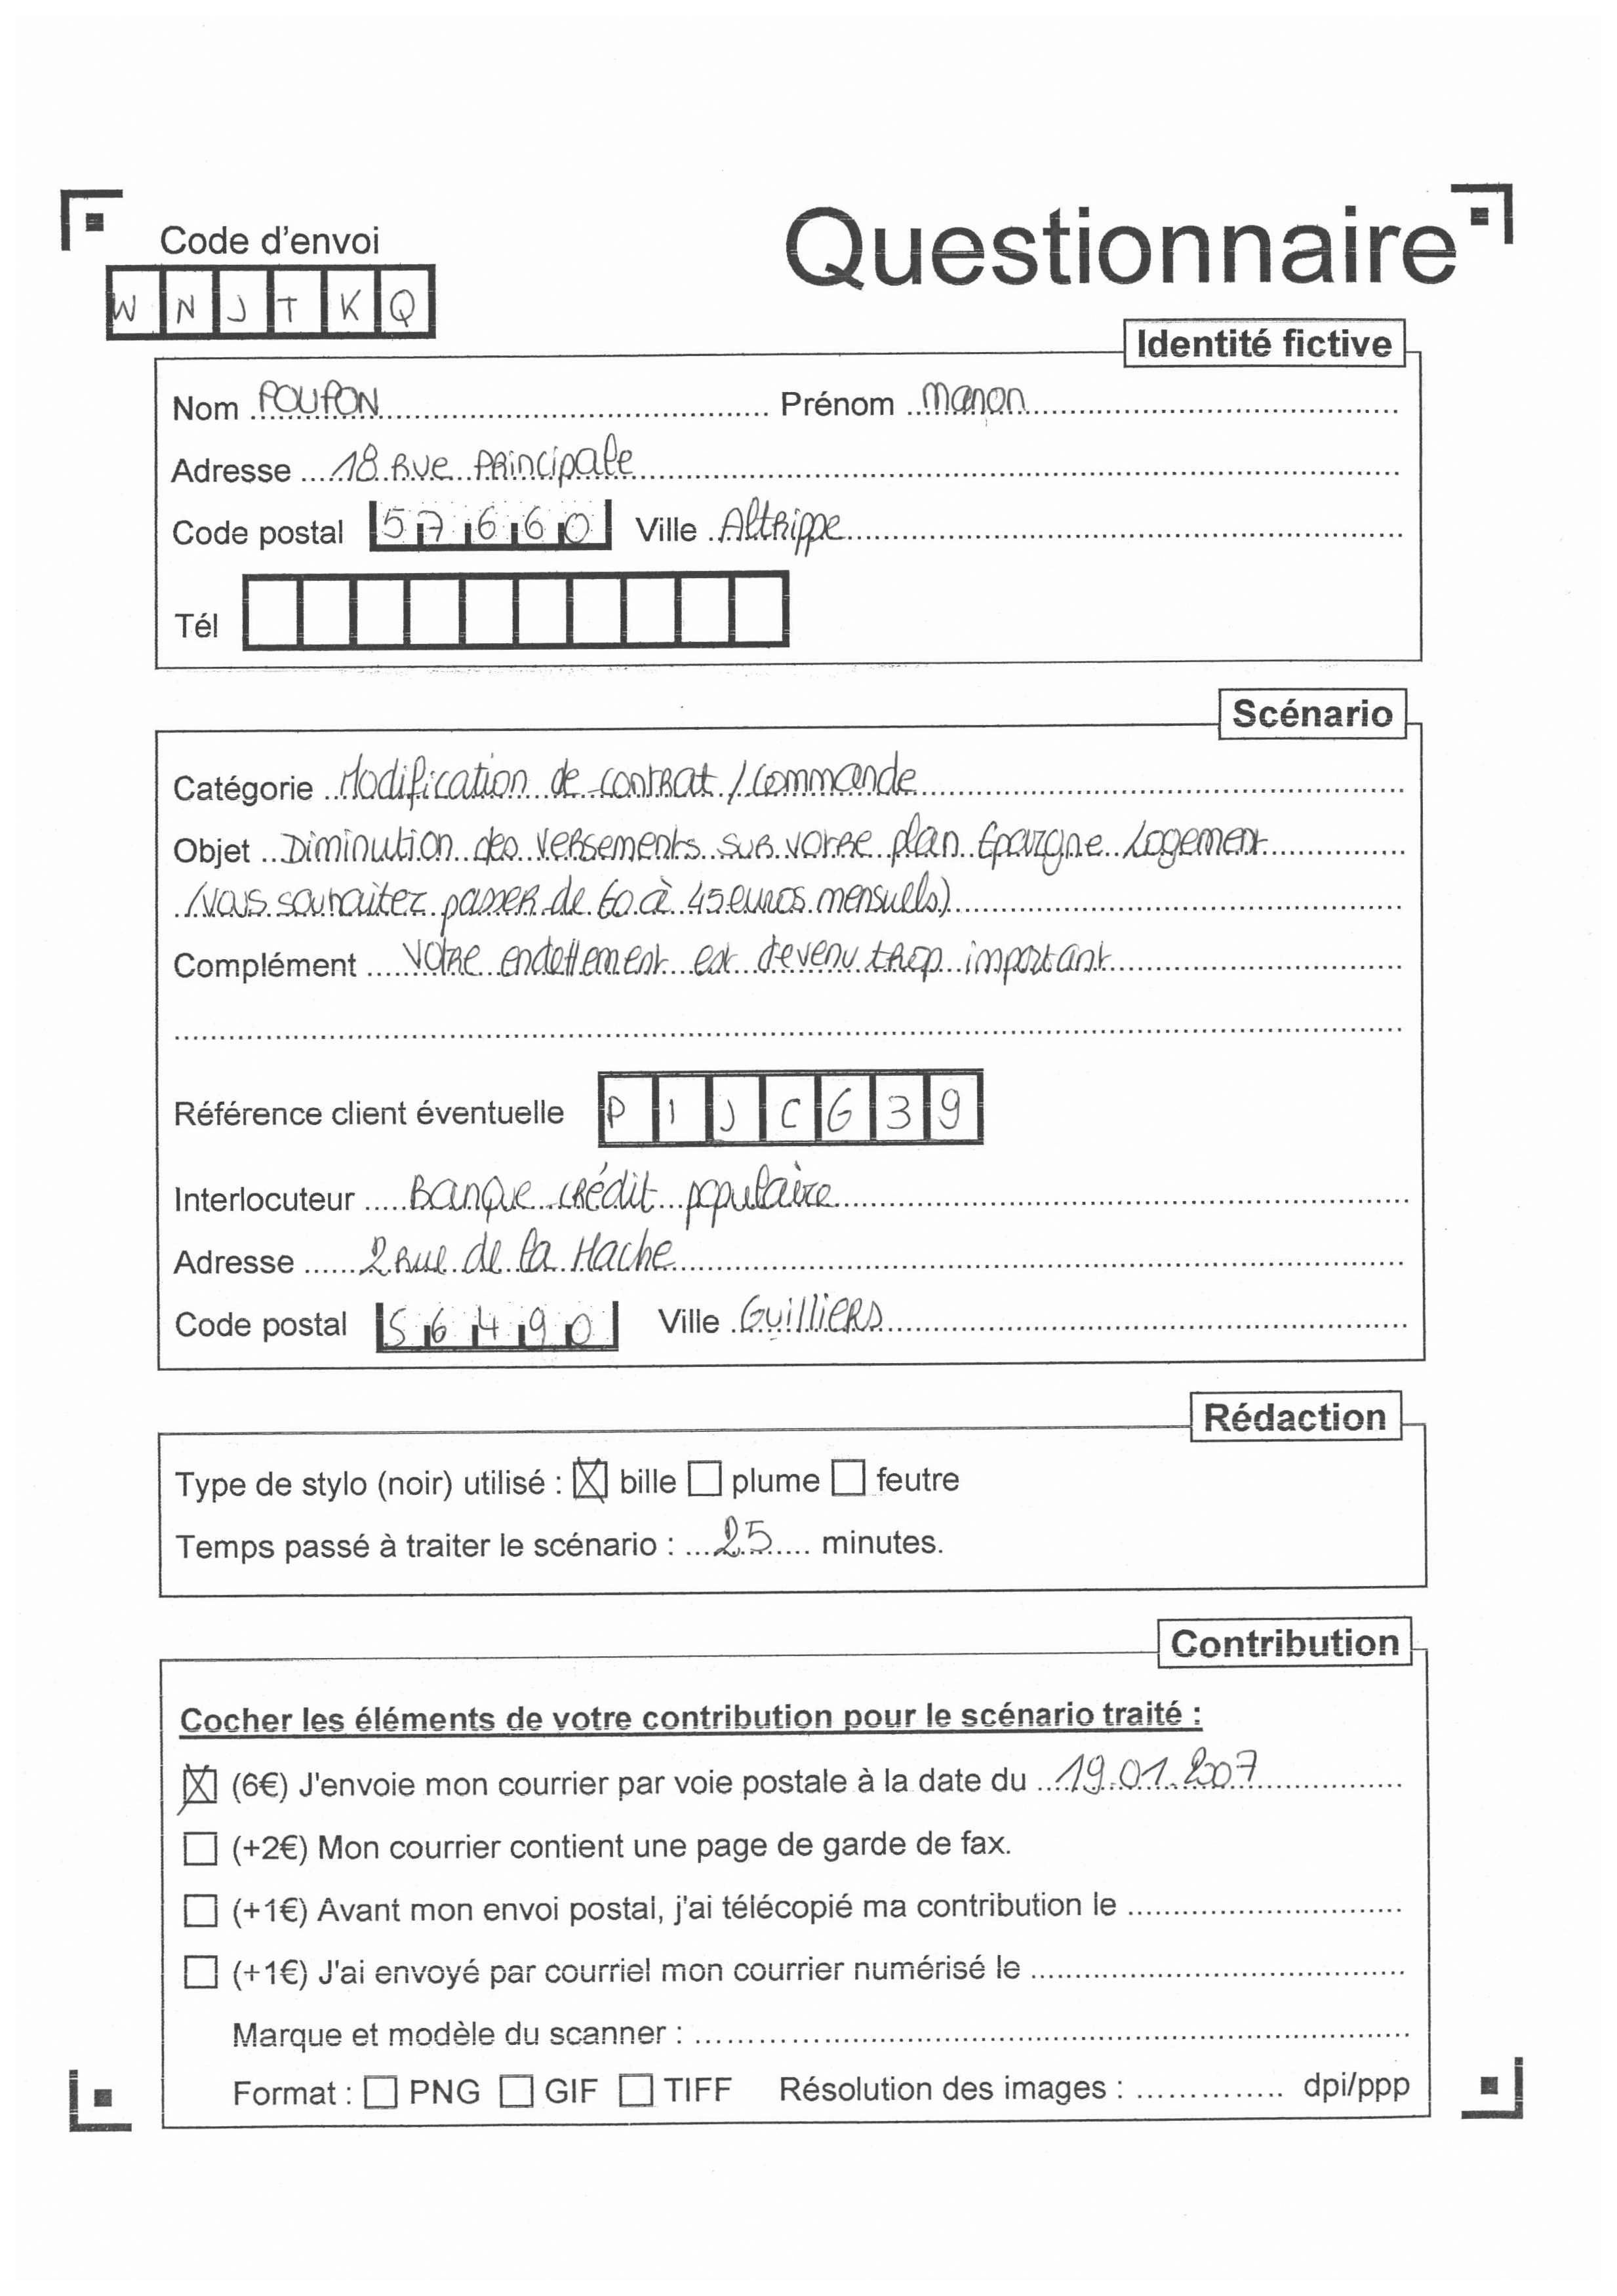 Questionnaire
Code d'envoi
W N J T K Q
Identité fictive
Nom POUPON Prénom Manon
Adresse 18 Rue Principale
Code postal 57660 Ville Altrippe
Tél
Scénario
Catégorie Modification de contrat / Commande
Objet Diminution des versements sur votre plan Epargne Logement
(vous souhaitez passer de 60 à 45 euros mensuells)
Complément Votre endettement est devenu trop important
Référence client éventuelle P I J C G 3 9
Interlocuteur Banque crédit populaire
Adresse 2 Rue de la Hache
Code postal 56490 Ville Guilliers
Rédaction
Type de stylo (noir) utilisé : bille plume feutre
Temps passé à traiter le scénario : 25 minutes.
Contribution
Cocher les éléments de votre contribution pour le scénario traité :
(6€) J'envoie mon courrier par voie postale à la date du 19.01.2007
(+2€) Mon courrier contient une page de garde de fax.
(+1€) Avant mon envoi postal, j'ai télécopié ma contribution le
(+1€) J'ai envoyé par courriel mon courrier numérisé le
Marque et modèle du scanner :
Format : PNG GIF TIFF Résolution des images : dpi/ppp